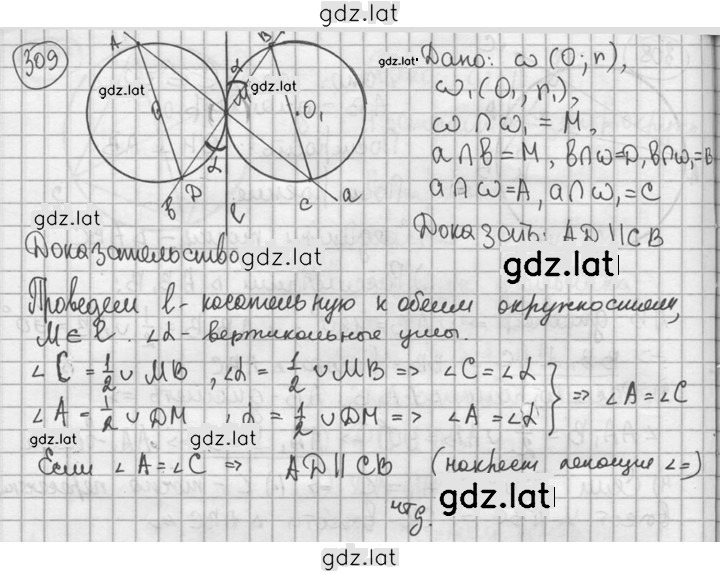 gdz.lat
309
A
B
α
gdz.lat
gdz.lat
M
O
O₁
α
D
C
a
в
ℓ
gdz.lat
gdz.lat
Дано: ω(O; r),
ω₁(O₁, r₁),
ω∩ω₁ = M,
a∩в = M, в∩ω=D, в∩ω₁=B
a∩ω=A, a∩ω₁=C
Доказать: AD∥CB
Доказательство
gdz.lat
gdz.lat
Проведем ℓ - касательную к обеим окружностям,
M∈ℓ. ∠α - вертикальные углы.
∠C = 1/2 ∪ MB, ∠α = 1/2 ∪ MB => ∠C = ∠α
∠A = 1/2 ∪ DM, ∠α = 1/2 ∪ DM => ∠A = ∠α } => ∠A = ∠C
gdz.lat
gdz.lat
Если ∠A = ∠C => AD∥CB (накрест лежащие ∠=)
чтд.
gdz.lat
gdz.lat